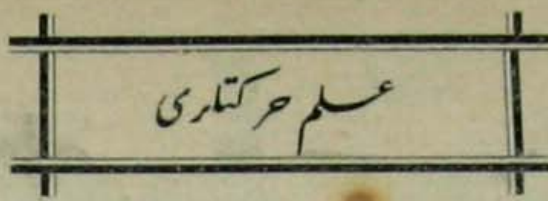 علم حركتلری